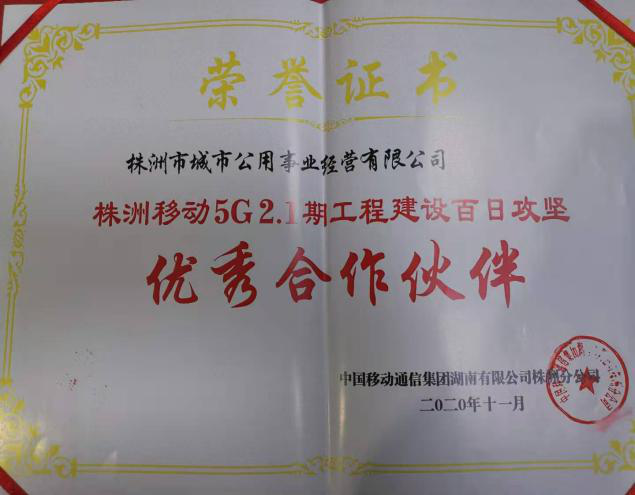 荣誉证书
株洲市城市公用事业经营有限公司
株洲移动5G 2.1期工程建设百日攻坚
优秀合作伙伴
中国移动通信集团湖南有限公司株洲分公司
二〇二〇年十一月